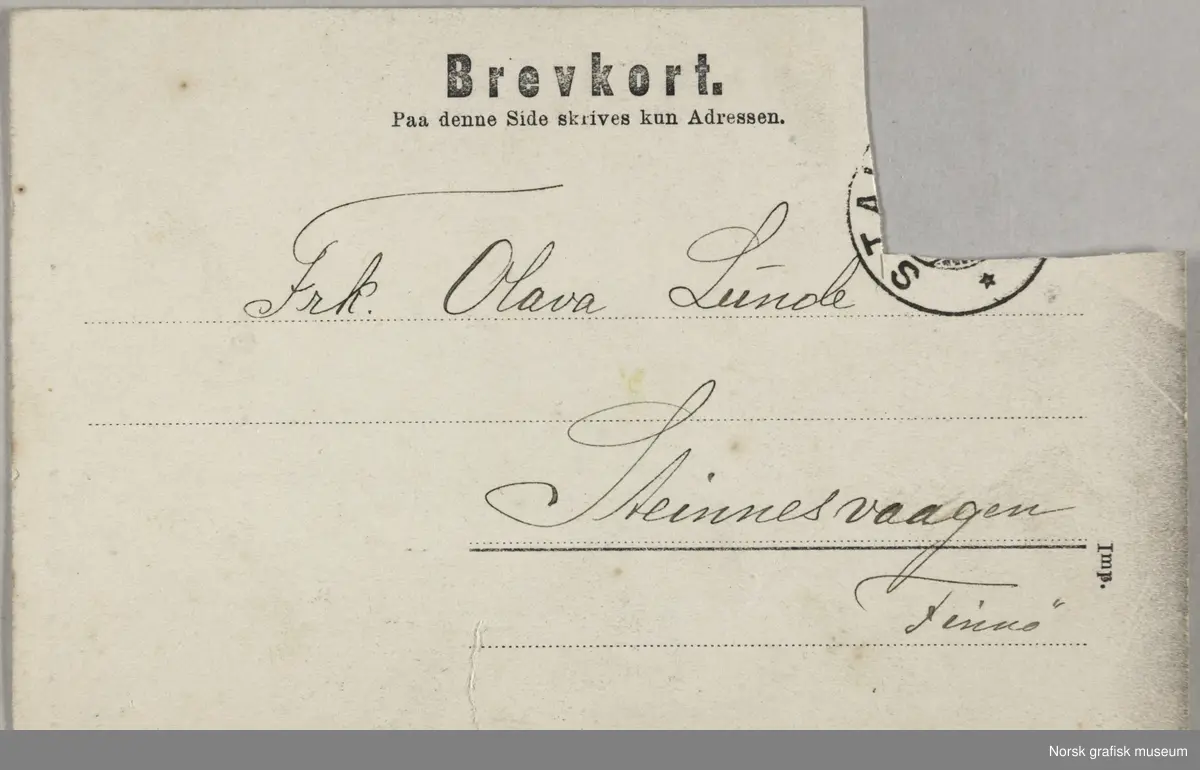 Brevkort.
Paa denne Side skrives kun Adressen.
STA
Frk. Olava Lunde
Steinnesvaagen
Imp.
Finnö
Norsk grafisk museum